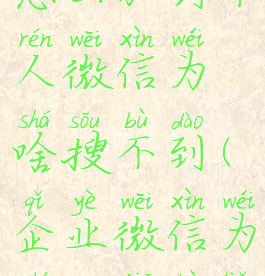 rén wēi xìn wéi
人微信为
shá sōu bù dào
啥搜不到(
qǐ yè wēi xìn wéi
企业微信为